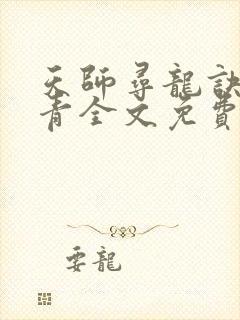 天師尋龍訣
青全文免費
要龍